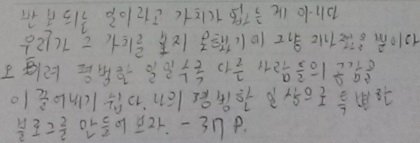 반복되는 일이라고 가치가 없는 게 아니다
우리가 그 가치를 보지 못했기에 그냥 지나쳤을 뿐이다
오히려 평범한 일일수록 다른 사람들의 공감을
이끌어내기 쉽다. 나의 평범한 일상으로 특별한
블로그를 만들어 보자. - 37 P.